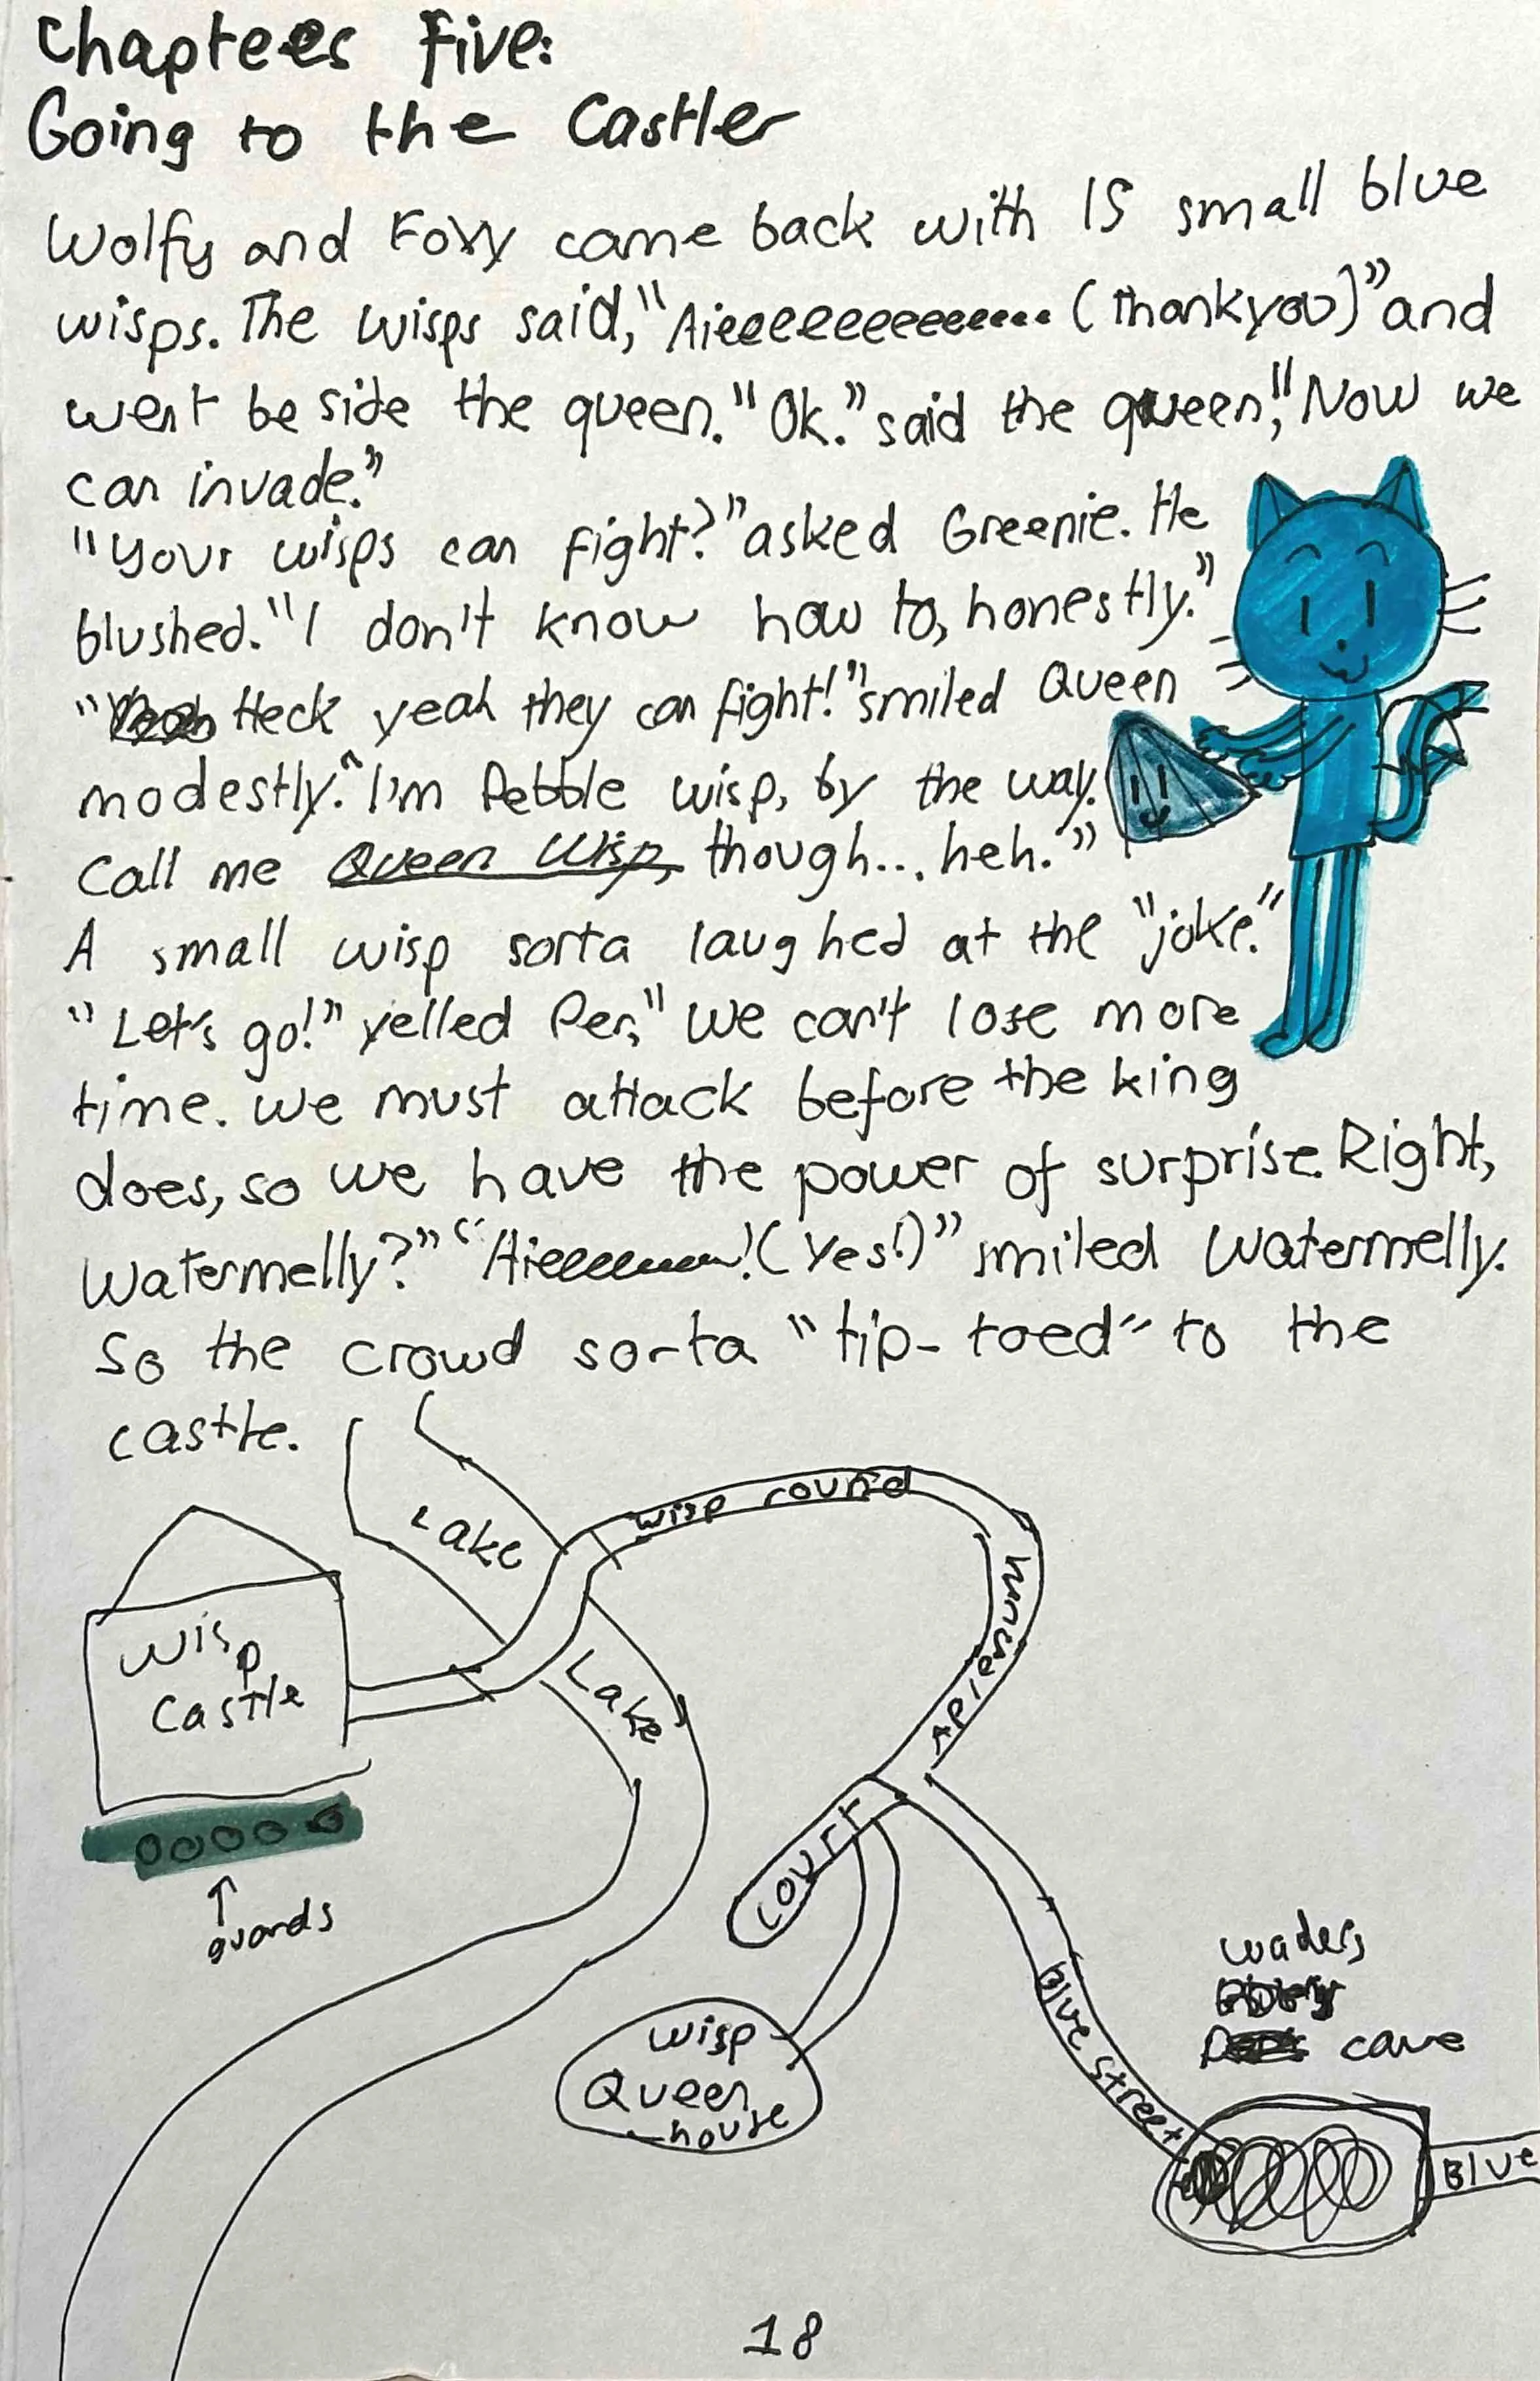 Chaptees Five:
Going to the Castler
Wolfy and Foxy came back with 15 small blue
wisps. The wisps said, "Aieeeeeeeeeeeee... (thankyou)" and
went be side the queen. "Ok." said the queen, "Now we
can invade."
"Your wisps can fight?" asked Greenie. He
blushed. "I don't know how to, honestly."
" Heck yeah they can fight!" smiled Queen
modestly. "I'm Pebble wisp, by the way.
Call me Queen Wisp, though... heh."
A small wisp sorta laughed at the "joke."
"Let's go!" yelled Per, "We can't lose more
time. We must attack before the king
does, so we have the power of surprise. Right,
Watermelly?" "Aieeeeeee! (Yes!)" smiled Watermelly.
So the crowd sorta "tip-toed" to the
castle.
Lake
wisp round
Wisp
Castle
Lake
court
guards
Blue street
waders
cave
wisp
Queen
house
Blue
18